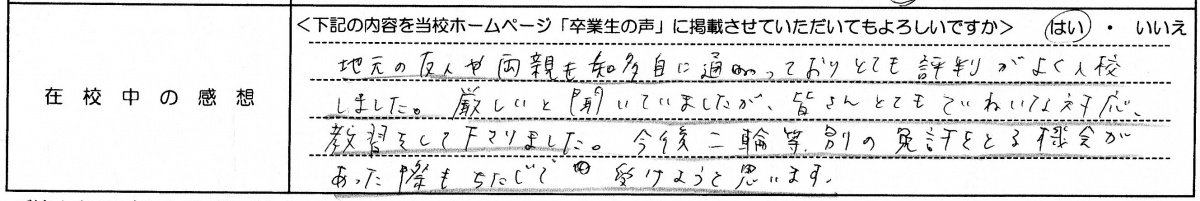 <下記の内容を当校ホームページ「卒業生の声」に掲載させていただいてもよろしいですか> はい ・ いいえ
在校中の感想
地元の友人や両親も知多自に通っておりとても評判がよく入校
しました。厳しいと聞いていましたが、皆さんとてもていねいな対応、
教習をして下さりました。今後二輪等別の免許をとる機会が
あった際もちたじで受けようと思います。